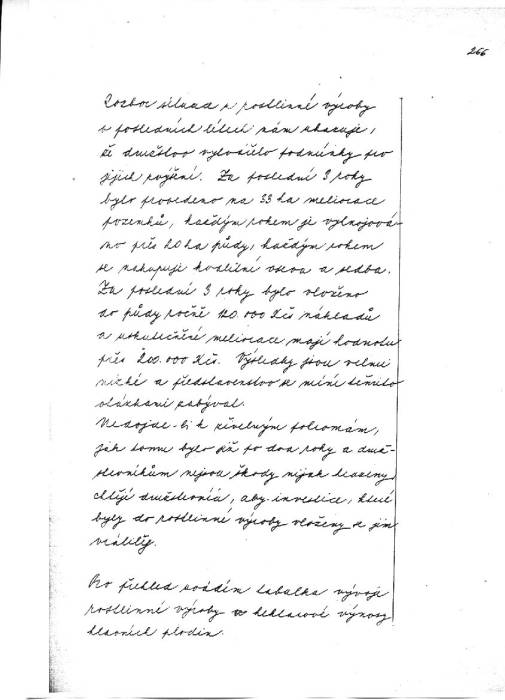 266
Rozbor situace v rostlinné výroby
v posledních létech nám ukazuje,
že družstvo vytvořilo podmínky pro
jejich zvýšení. Za poslední 3 roky
bylo provedeno na 53 ha meliorace
pozemků, každým rokem je vyhnojová-
no přes 20 ha půdy, každým rokem
se nakupuje kvalitní osiva a sadba.
Za poslední 3 roky bylo vloženo
do půdy ročně 120.000 Kčs nákladů
a uskutečněné meliorace mají hodnotu
přes 200.000 Kčs. Výsledky jsou velmi
nízké a představenstvo se míní těmito
otázkami zabýval.
Nedojde-li k živelným pohromám,
jak tomu bylo již po dva roky a druž-
stevníkům nejsou škody nijak hrazeny
chtějí družstevníci, aby investice, které
byly do rostlinné výroby vloženy se jim
vrátily.
Pro přehled uvádím tabulka vývoje
rostlinné výroby ve hektarové výnosy
hlavních plodin.